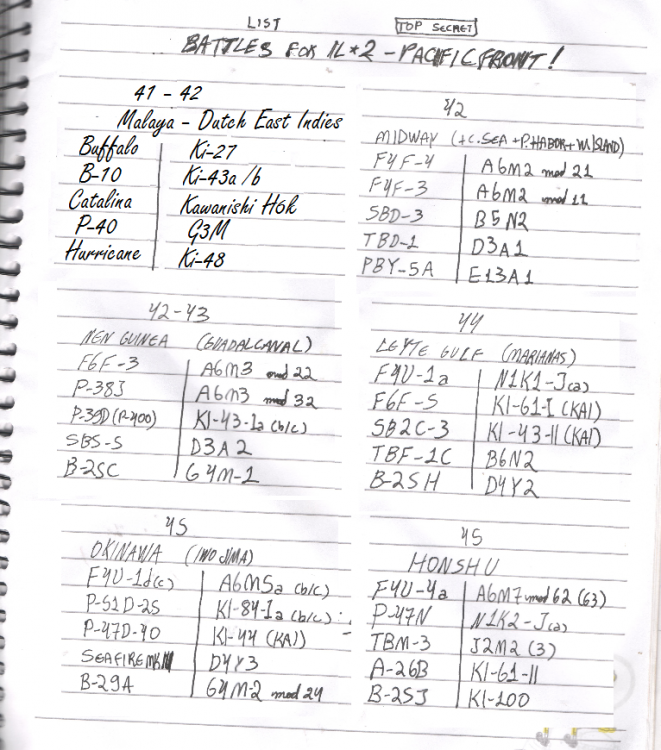 LIST
TOP SECRET
BATTLES FOR IL*2 - PACIFIC FRONT!
41 - 42
Malaya - Dutch East Indies
Buffalo Ki-27
B-10 Ki-43a/b
Catalina Kawanishi H6k
P-40 G3M
Hurricane Ki-48
42
MIDWAY (+C.SEA +P.HABOR+W.ISLAND)
F4F-4 A6M2 mod 21
F4F-3 A6M2 mod 11
SBD-3 B5N2
TBD-1 D3A1
PBY-5A E13A1
42-43
NEW GUINEA (GUADALCANAL)
F6F-3 A6M3 mod 22
P-38J A6M3 mod 32
P-39D (P-400) KI-43-Ia (b/c)
SBS-5 D3A2
B-25C G4M-1
44
LEYTE GULF (MARIANAS)
F4U-1a N1K1-J(a)
F6F-5 KI-61-I (KAI)
SB2C-3 KI-43-II (KAI)
TBF-1C B6N2
B-25H D4Y2
45
OKINAWA (IWO JIMA)
F4U-1d(c) A6M5a (b/c)
P-51D-25 KI-84-Ia (b/c)
P-47D-40 KI-44 (KAI)
SEAFIRE D4Y3
B-29A G4M-2 mod 24
45
HONSHU
F4U-4a A6M7 mod 62 (63)
P-47N N1K2-J(a)
TBM-3 J2M2 (3)
A-26B KI-61-II
B-25J KI-100